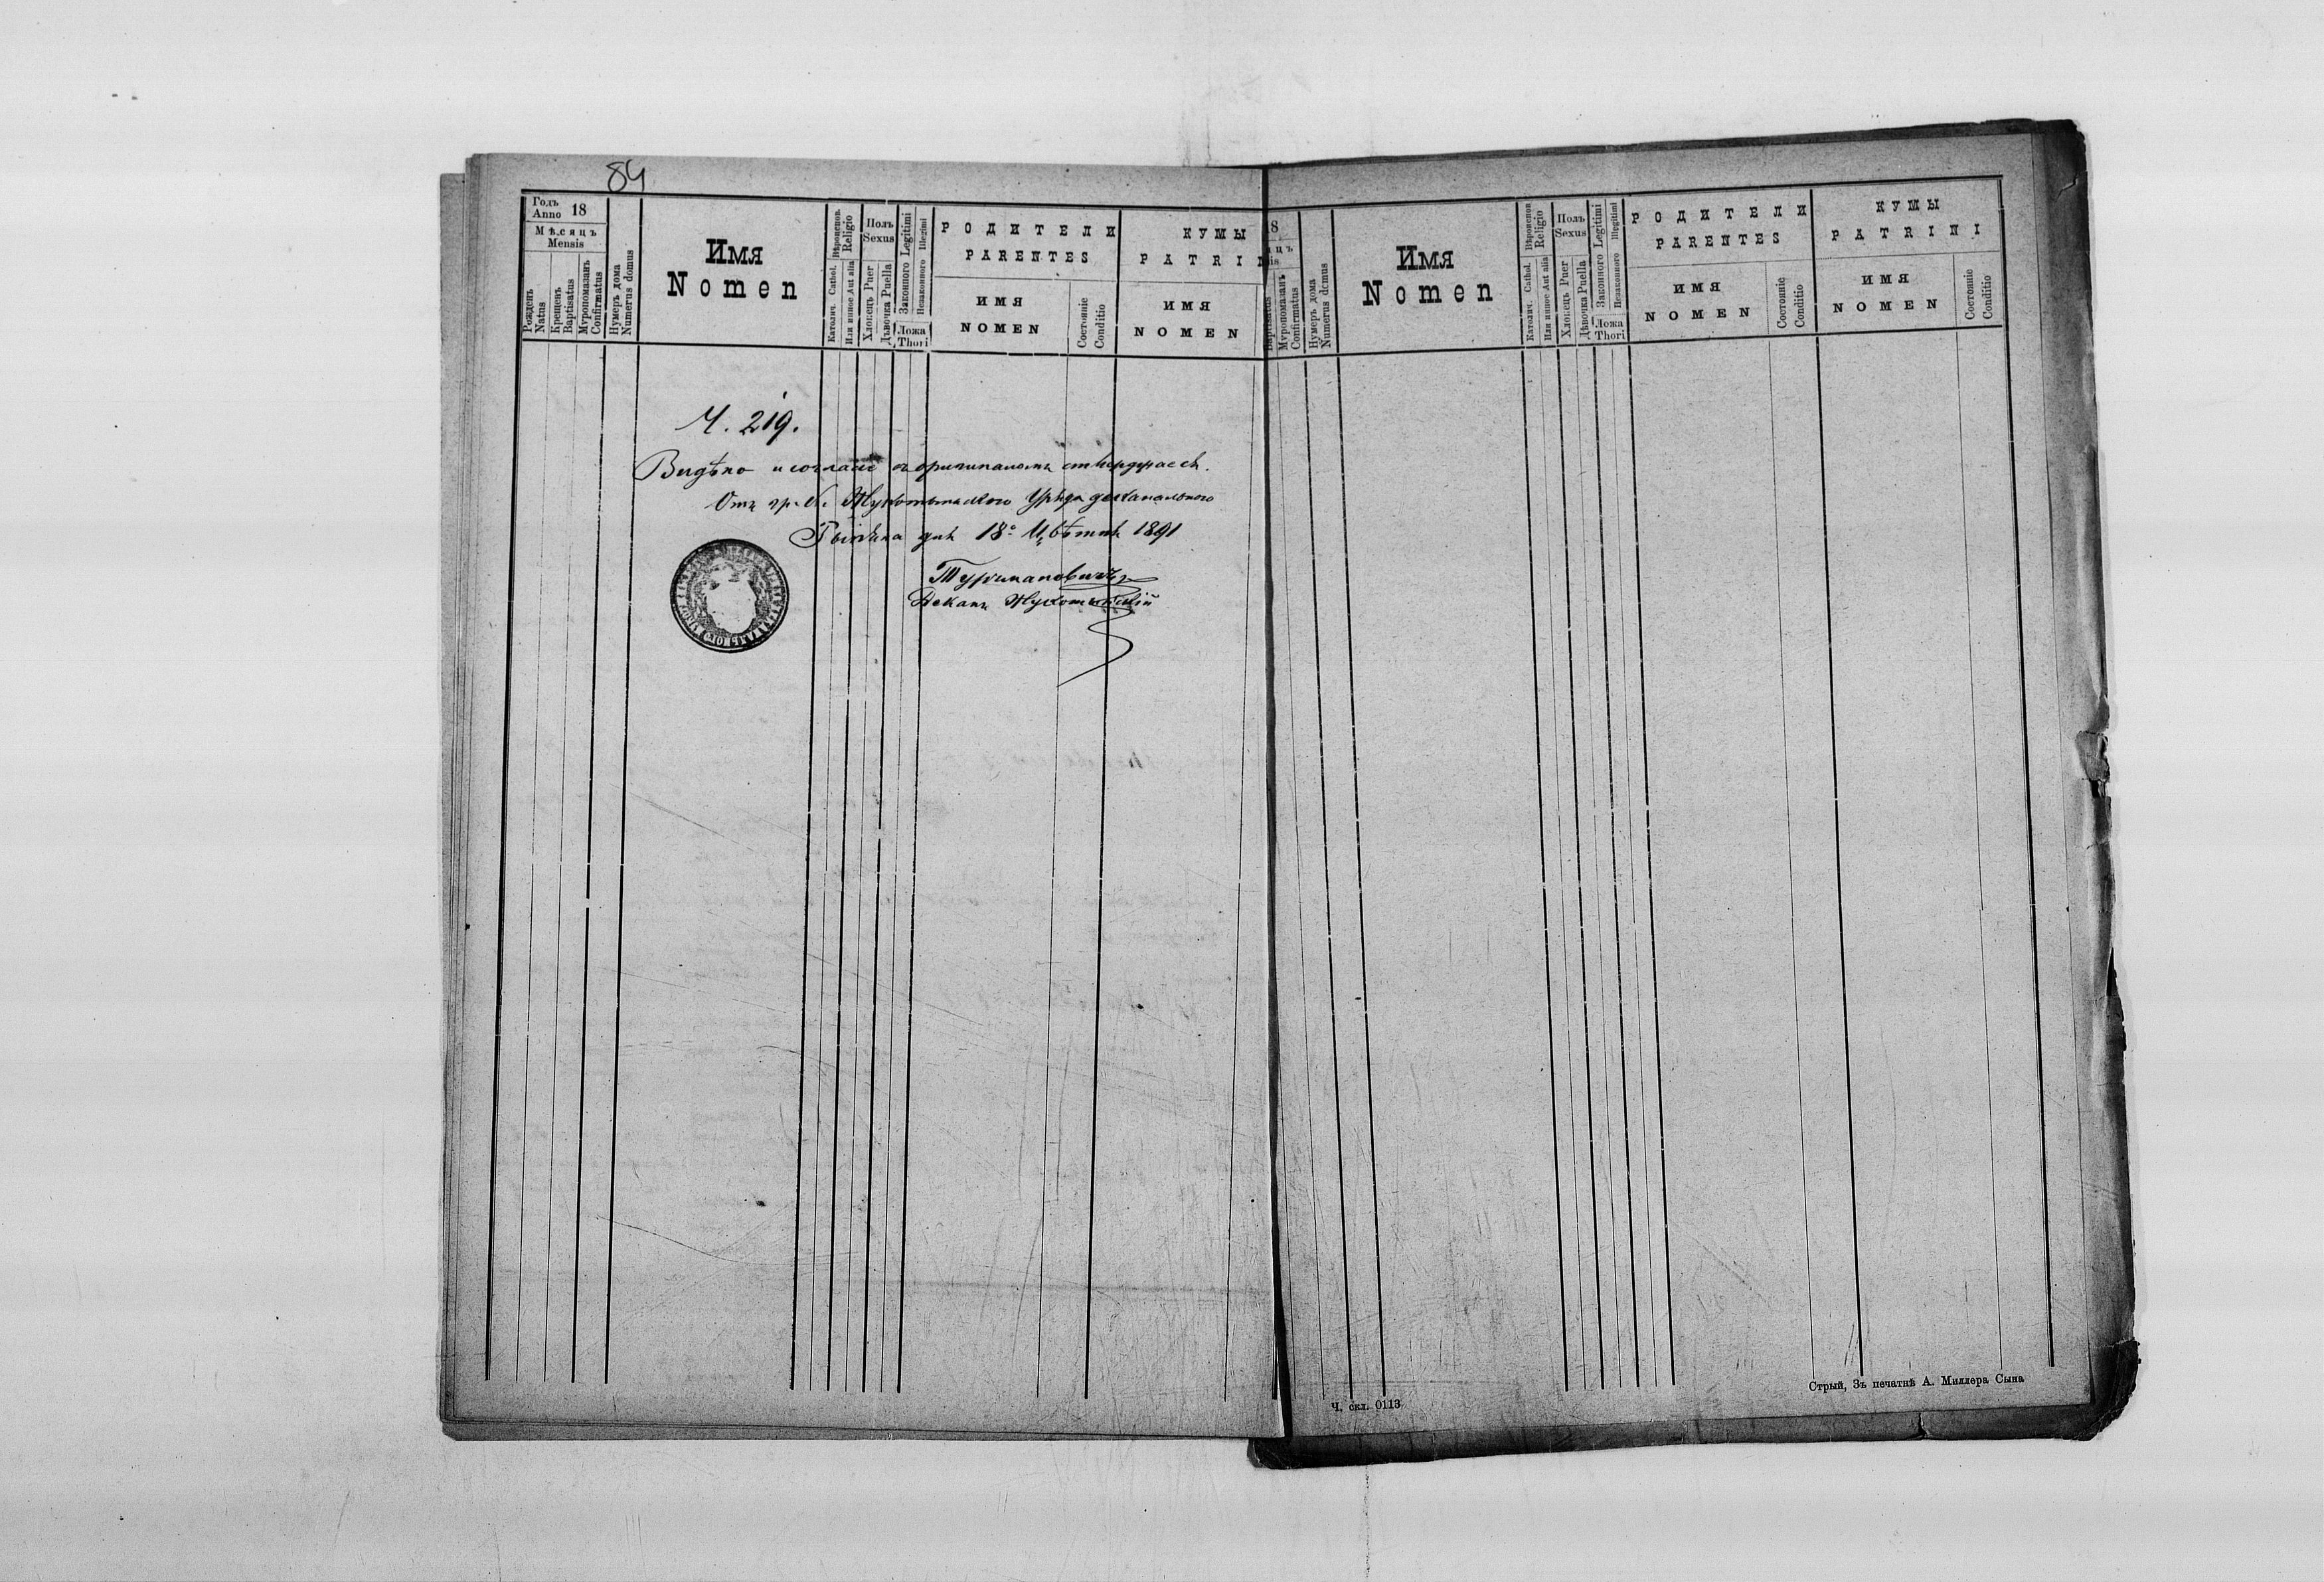 84
Годъ
Anno 18
Мѣсяцъ
Mensis
Рожденъ
Natus
Крещенъ
Baptisatus
Муропомазанъ
Confirmatus
Нумеръ дома
Numerus domus
Имя
Nomen
Вѣроиспов.
Religio
Католич. Cathol.
Или инное Aut alia
Полъ
Sexus
Хлопецъ Puer
Дѣвочка Puella
Законного Legitimi
Незаконного Illegimi
Ложа
Thori
РОДИТЕЛИ
PARENTES
ИМЯ
NOMEN
Состояніе
Conditio
КУМЫ
PATRI
ИМЯ
NOMEN
Ч. 219.
Видѣно и согласіе съ оригиналомъ стверджаесь.
Отъ гр. Жукотынского Уряда деканального
дня 18. Цвѣтня 1891
Деканъ Жукотынскій
18
Baptisatus
Муропомазанъ
Confirmatus
Нумеръ дома
Numerus domus
Имя
Nomen
Вѣроиспов.
Religio
Католич. Cathol.
Или инное Aut alia
Полъ
Sexus
Хлопецъ Puer
Дѣвочка Puella
Законного Legitimi
Незаконного Illegitimi
Ложа
Thori
РОДИТЕЛИ
PARENTES
ИМЯ
NOMEN
Состояніе
Conditio
КУМЫ
PATRINI
ИМЯ
NOMEN
Состояніе
Conditio
Ч. скл. 0113
Стрый, Зъ печатнѣ А. Миллера Сына